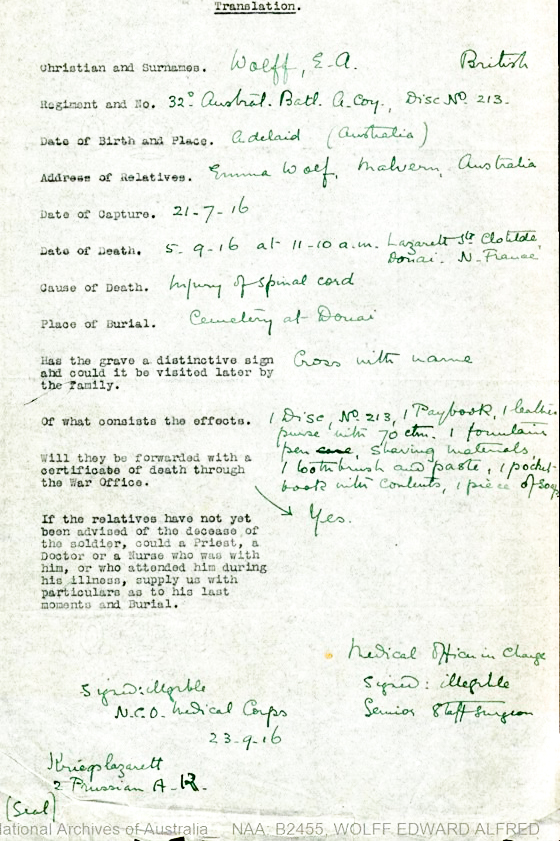 Translation.
Christian and Surnames. Wolff, E.A. British
Regiment and No. 32º Austral. Batl. A. Coy., Disc Nº 213.
Date of Birth and Place. Adelaid (Australia)
Address of Relatives. Emma Wolf, Malvern, Australia
Date of Capture. 21-7-16
Date of Death. 5-9-16 at 11-10 a.m. Lazarett Ste Clotilde,
Douai. N. France
Cause of Death. Injury of spinal cord
Place of Burial. Cemetery at Douai
Has the grave a distinctive sign Cross with name
ahd could it be visited later by
the family.
Of what consists the effects. 1 Disc, Nº 213, 1 Paybook, 1 leather
purse with 70 ctm. 1 fountain
Will they be forwarded with a pen case, shaving materials,
certificate of death through 1 toothbrush and paste, 1 pocket-
the War Office. book with contents, 1 piece of soap
Yes.
If the relatives have not yet
been advised of the decease of
the soldier, could a Priest, a
Doctor or a Nurse who was with
him, or who attended him during
his illness, supply us with
particulars as to his last
moments and Burial.
Medical Officer in Charge
Signed: illegible
Senior Staff Surgeon
Signed: illegible
N.C.O. Medical Corps
23-9-16
Kriegslazarett
2 Prussian A-K.
(Seal)
National Archives of Australia NAA: B2455, WOLFF EDWARD ALFRED